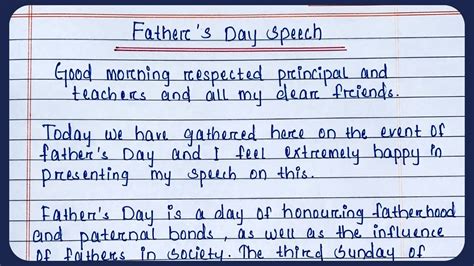 Father's Day speech
Good morning respected principal and
teachers and all my dear friends.
Today we have gathered here on the event of
father's Day and I feel extremely happy in
presenting my speech on this.
Father's Day is a day of honouring fatherhood
and paternal bonds, as well as the influence
of fathers in society. The third Sunday of